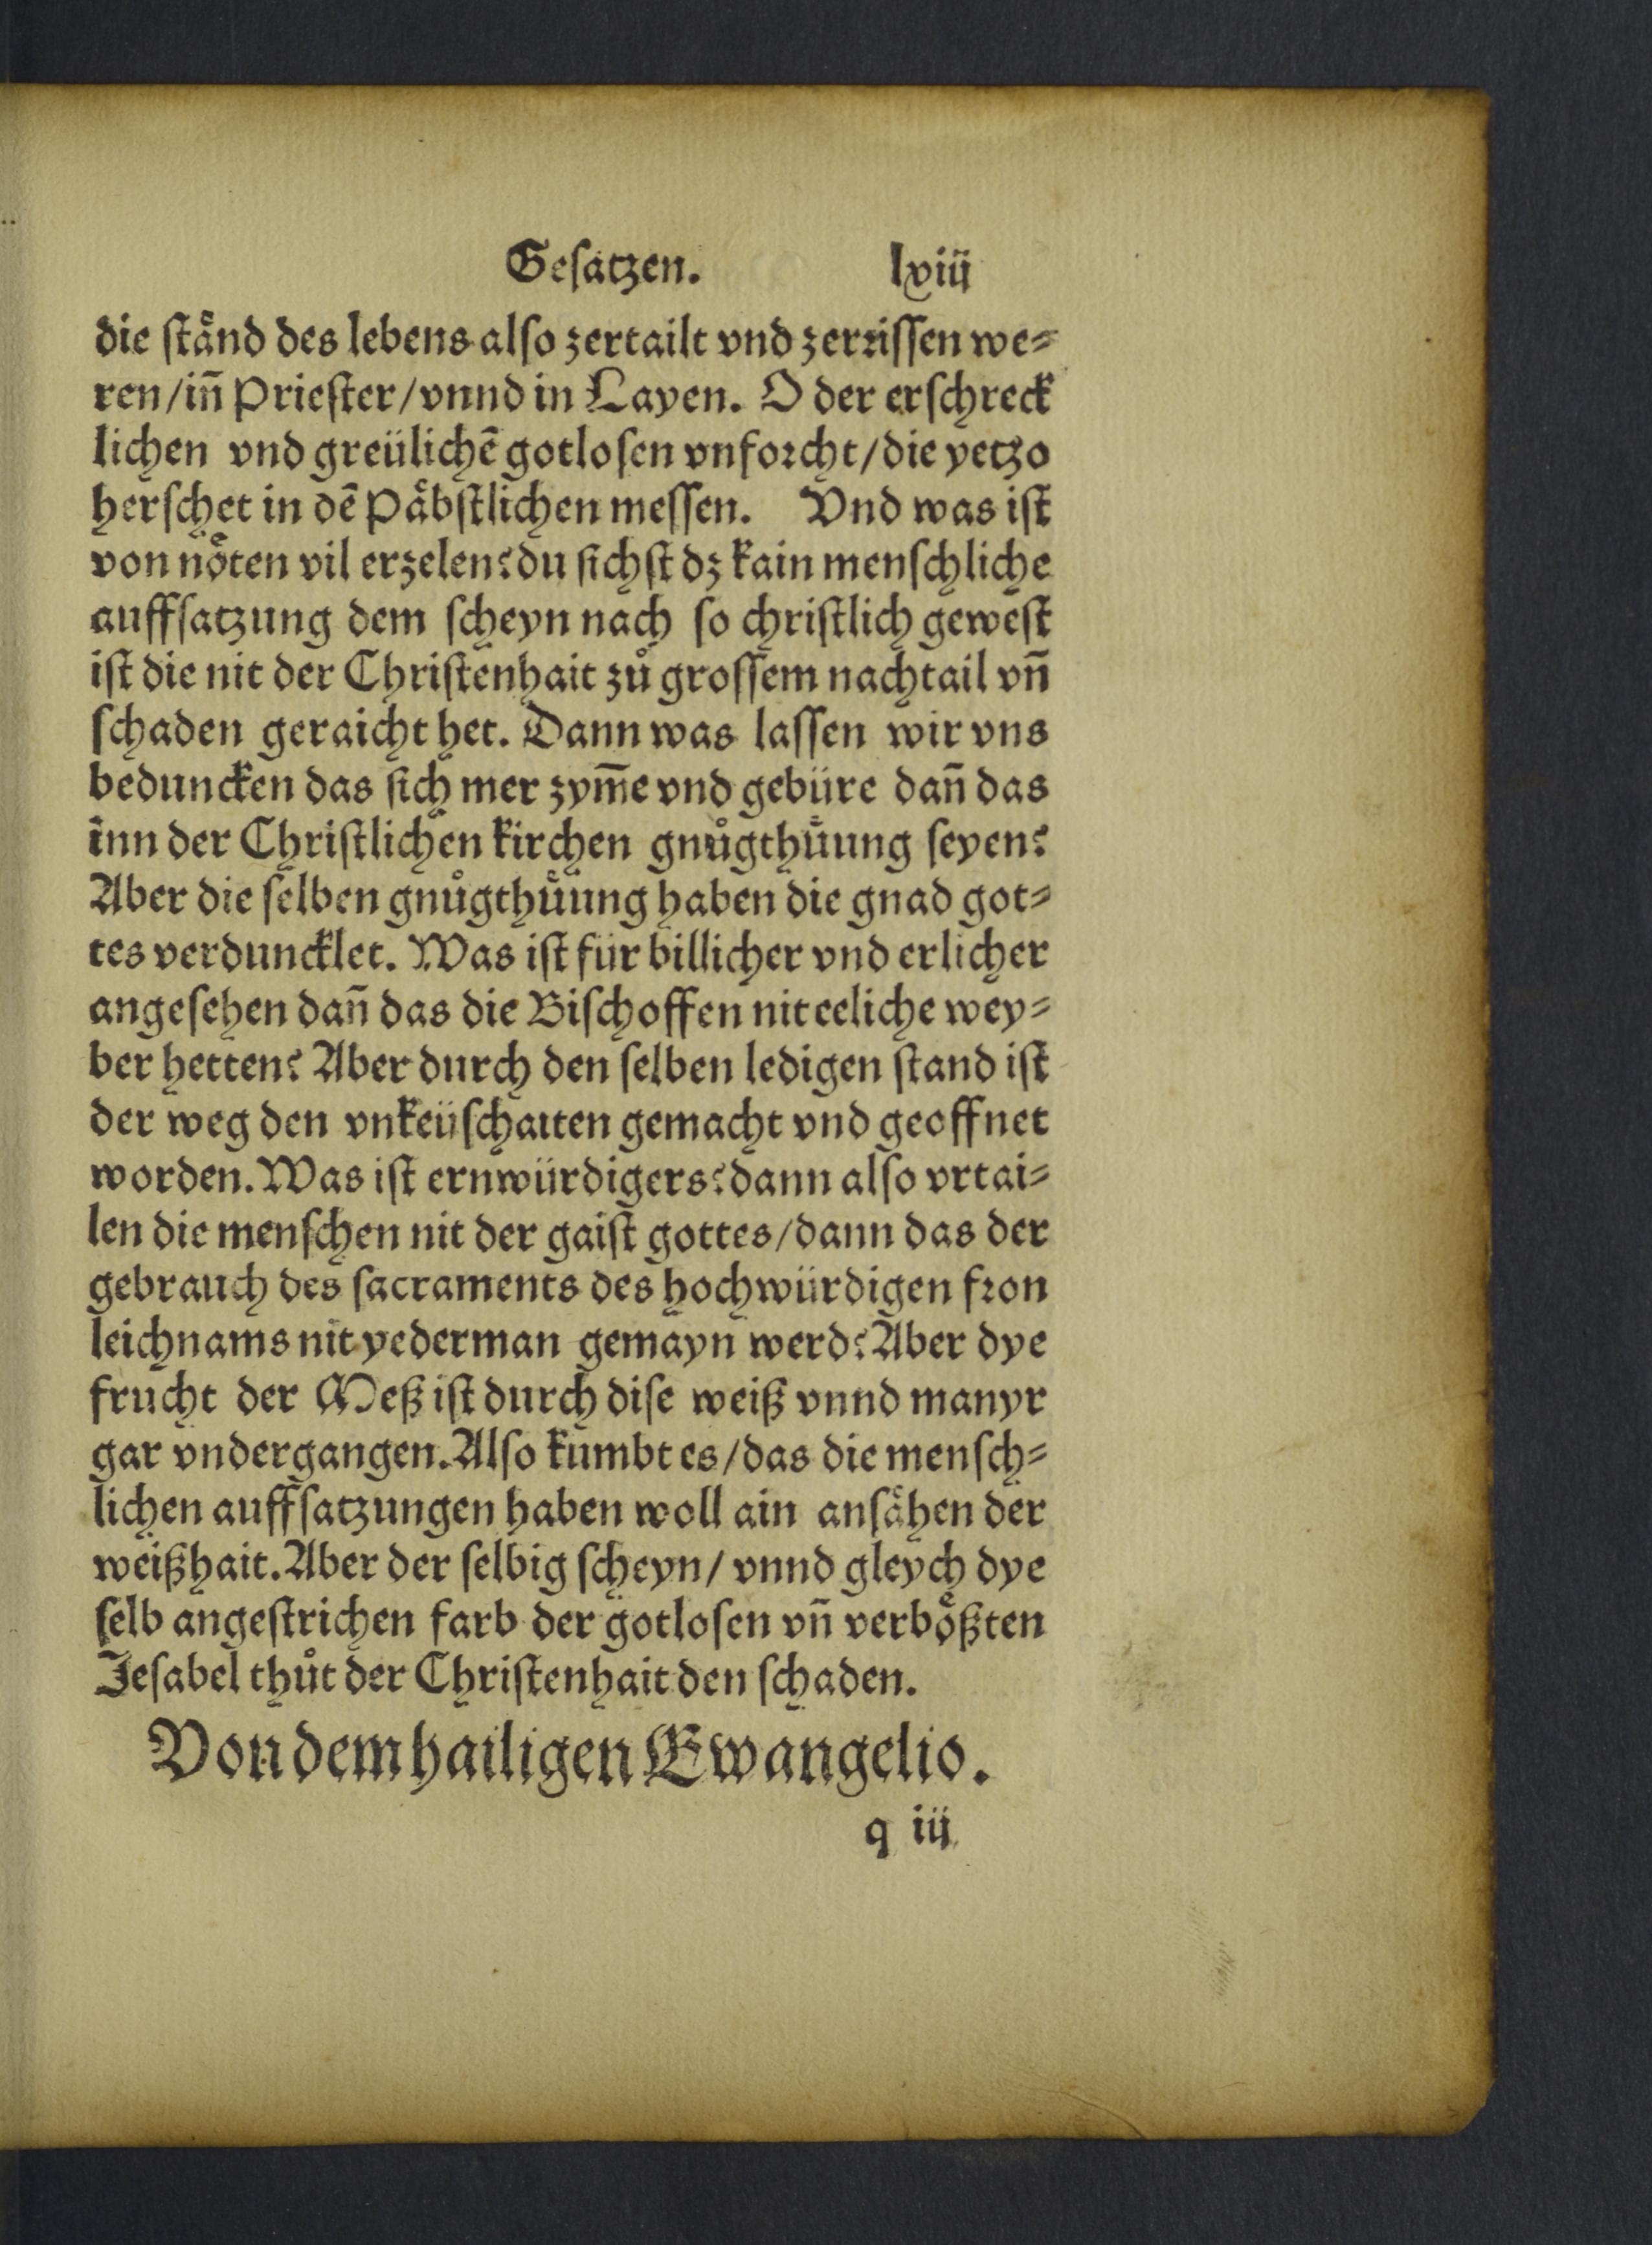 Gesatzen. lxiij
die ſtaͤnd des lebens alſo zertailt vnd zerriſſen we⸗
ren/in̄ Prieſter/vnnd in Layen. O der erſchreck
lichen vnd greülichē gotloſen vnforcht/die yetzo
herſchet in dē Paͤbſtlichen meſſen. Vnd was iſt
von noͤten vil erzelen? du ſichſt dz kain menſchliche
auffſatzung dem ſcheyn nach ſo chriſtlich geweſt
iſt die nit der Chriſtenhait zuͦ groſſem nachtail vn̄
ſchaden geraicht het. Dann was laſſen wir vns
beduncken das ſich mer zym̄e vnd gebüre dan̄ das
inn der Chriſtlichen kirchen gnuͦgthuͤung ſeyen?
Aber die ſelben gnuͦgthuͤung haben die gnad got⸗
tes verduncklet. Was iſt für billicher vnd erlicher
angeſehen dan̄ das die Biſchoffen nit eeliche wey⸗
ber hetten? Aber durch den ſelben ledigen ſtand iſt
der weg den vnkeüſchaiten gemacht vnd geoffnet
worden. Was iſt ernwürdigers? dann alſo vrtai⸗
len die menſchen nit der gaiſt gottes/dann das der
gebrauch des ſacraments des hochwürdigen fron
leichnams nit yederman gemayn werd? Aber dye
frucht der Meß iſt durch diſe weiß vnnd manyr
gar vndergangen. Alſo kumbt es/das die menſch⸗
lichen auffſatzungen haben woll ain anſaͤhen der
weißhait. Aber der ſelbig ſcheyn/ vnnd gleych dye
ſelb angeſtrichen farb der gotloſen vn̄ verboͤßten
Jeſabel thuͦt der Chriſtenhait den ſchaden.
Von dem hailigen Ewangelio.
q iij